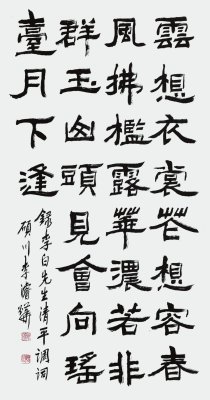 雲想衣裳花想容春
風拂檻露華濃若非
群玉山頭見會向瑤
臺月下逢
錄李白先生清平調詞
川李